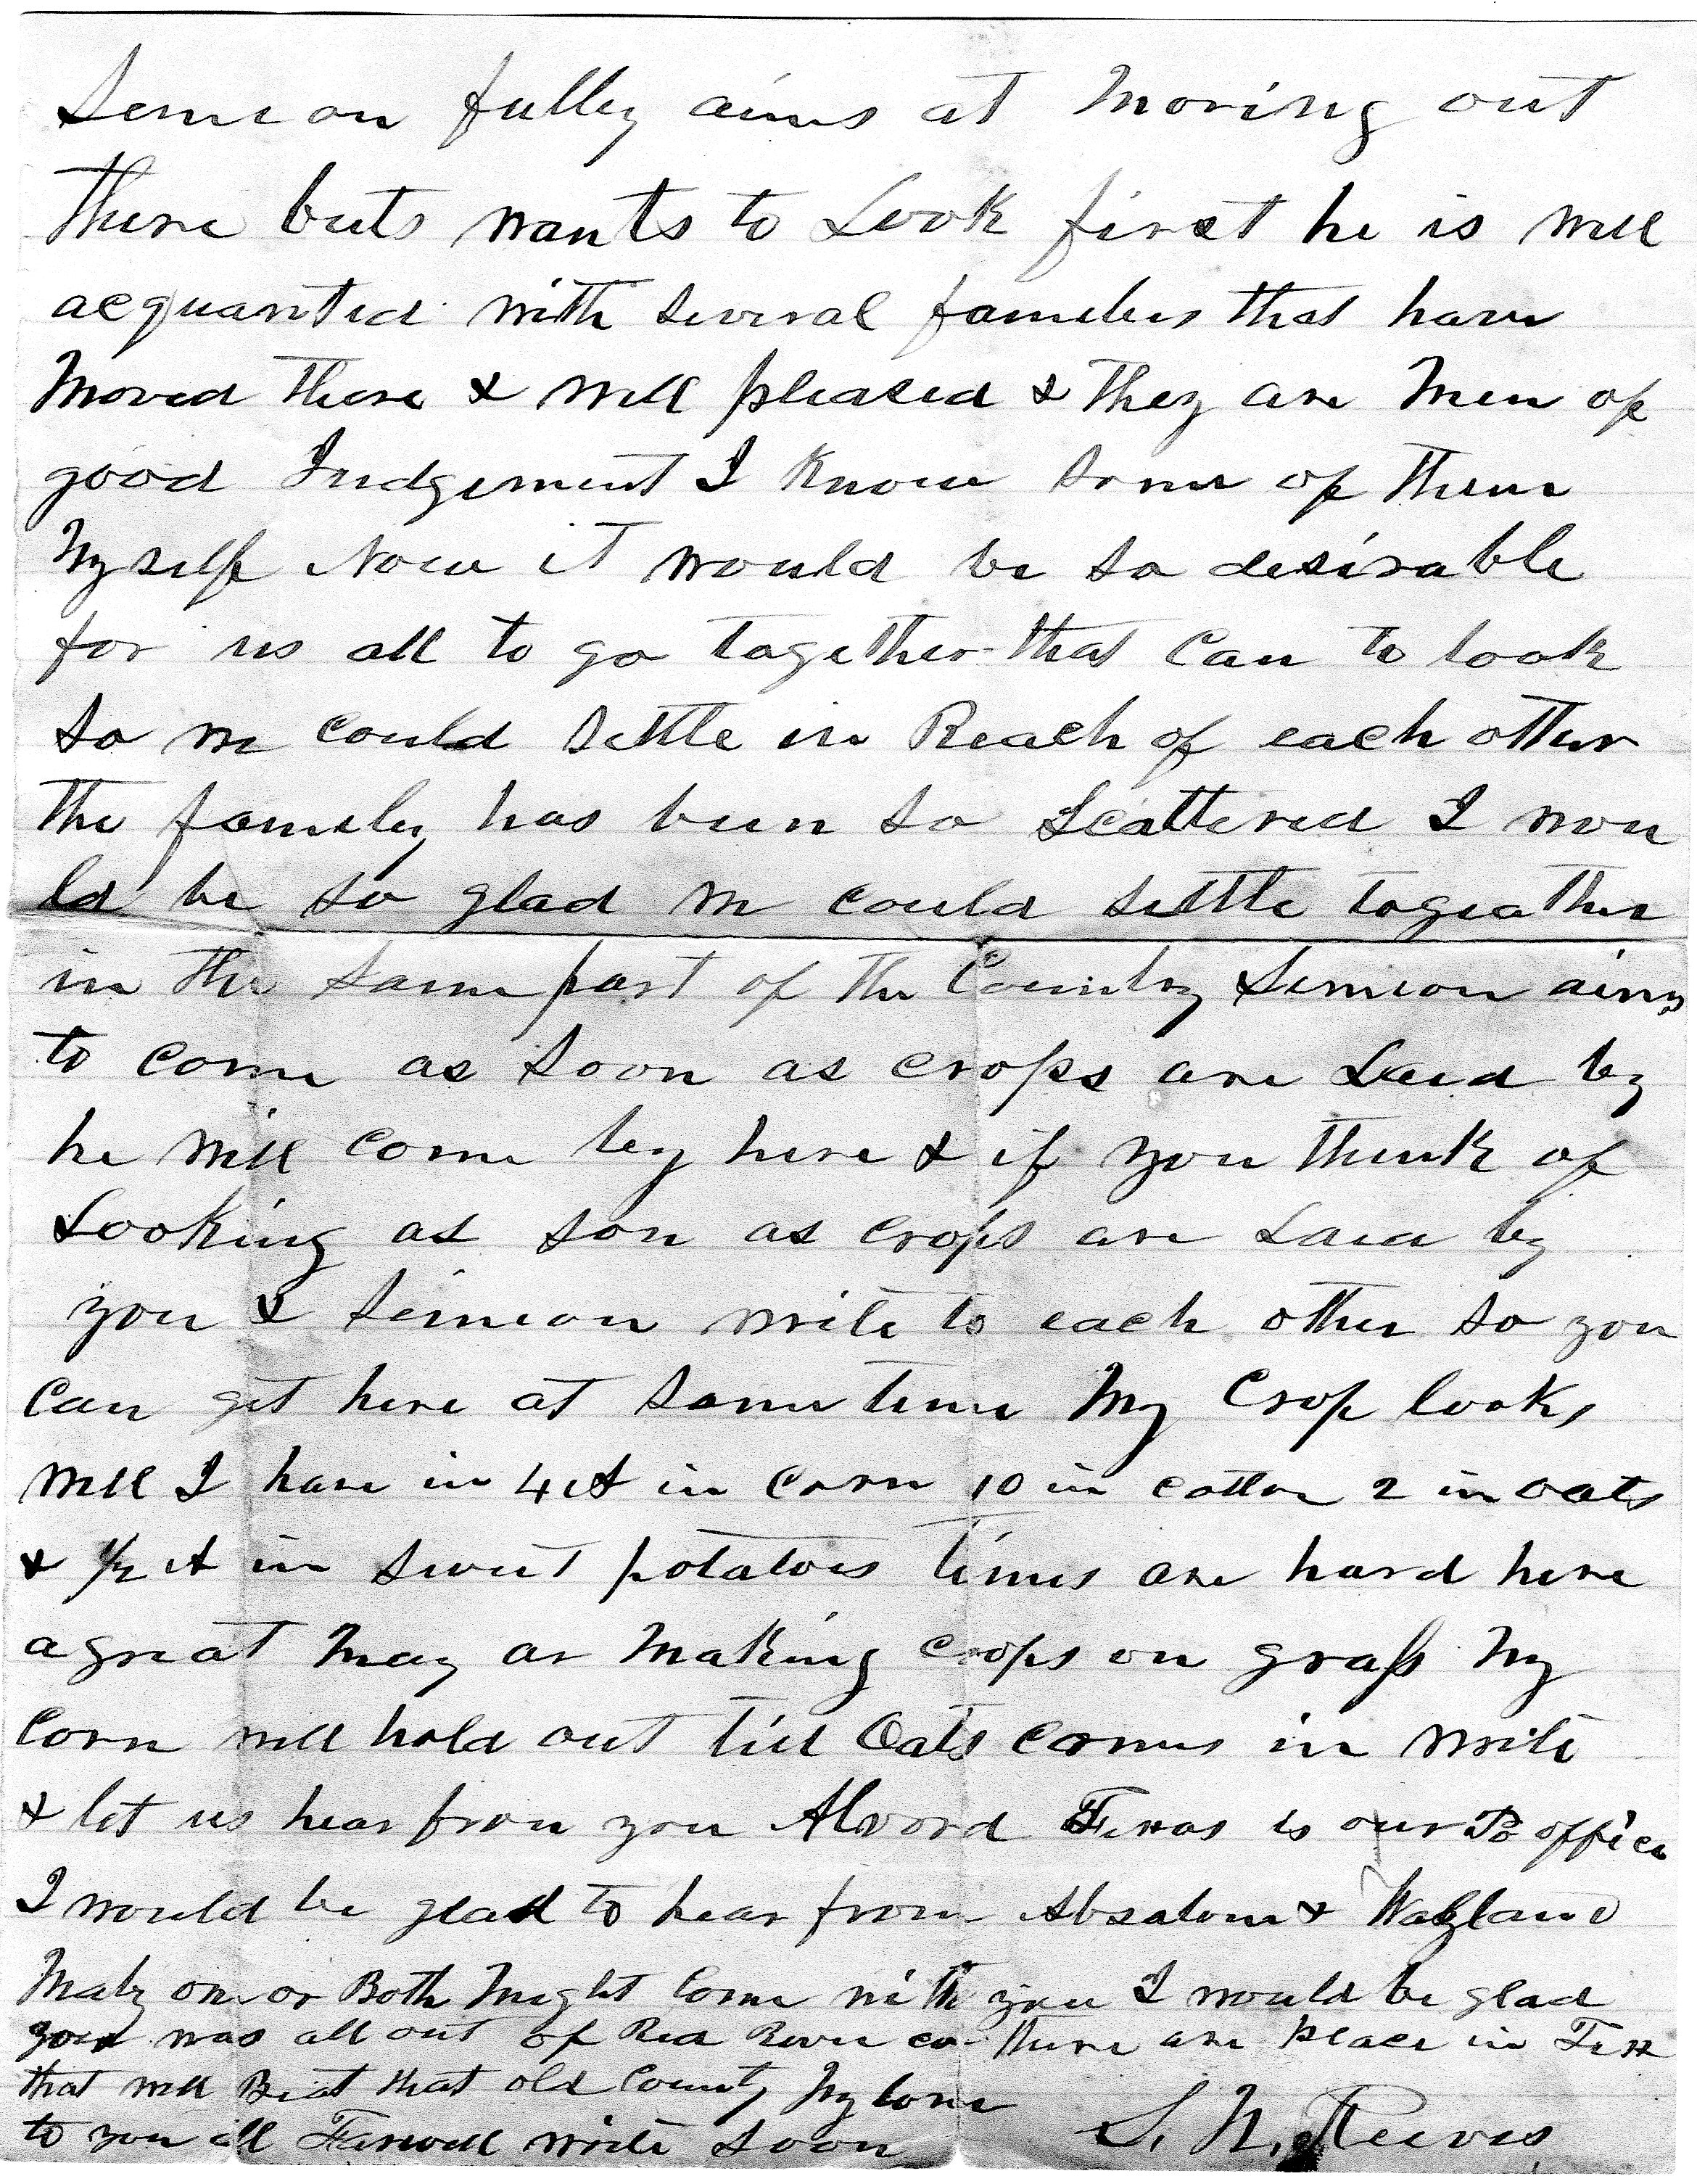 Simeon fully aims at Moving out
there buts wants to Look first he is well
acquanted with several famelies that have
Moved there & well pleased & they are Men of
good Judgement I Know some of them
Myself Now it would be so desirable
for us all to go together that Can to look
so we could settle in Reach of each other
the famely has been so Scattered I wou
ld be so glad we could settle togeather
in the same part of the Country Simeon aims
to come as soon as crops are Laid by
he will come by here & if you think of
Looking as son as crops are Laid by
you & Simeon write to each other so you
Can get here at same time My Crop looks
well I have in 4 A in Corn 10 in cotton 2 in oats
& 1/2 A in sweet potatoes times are hard here
a great May ar Making crops on grass My
Corn will hold out till Oats comes in write
& let us hear from you Alvord Texas is our Po office
I would be glad to hear from Absalom &
Maby one or Both Might Come with you I would be glad
you was all out of Red River co there are place in Tex
that will Beat that old County My love
to you all Farwell write soon S. N. Reeves